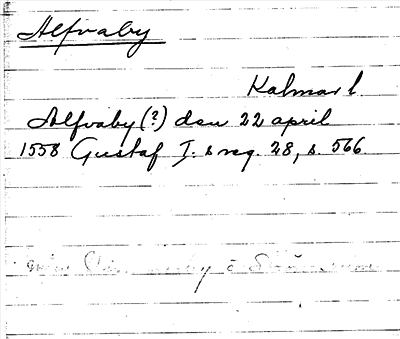 Alfvaby
Kalmar l.
Alfvaby (?) den 22 april
1558 Gustaf I:s reg. 28, s. 566.